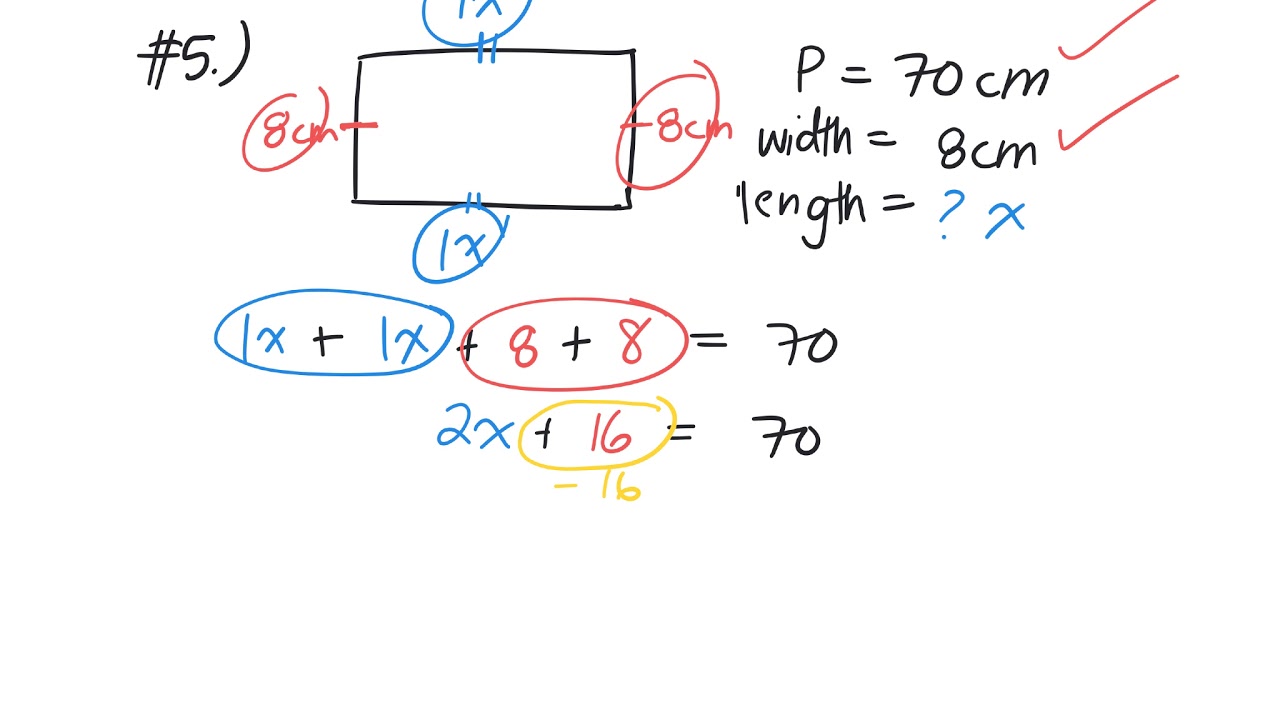 1x
#5.)
8cm
8cm
1x
P = 70 cm
width = 8cm
length = ? x
1x + 1x + 8 + 8 = 70
2x + 16 = 70
- 16